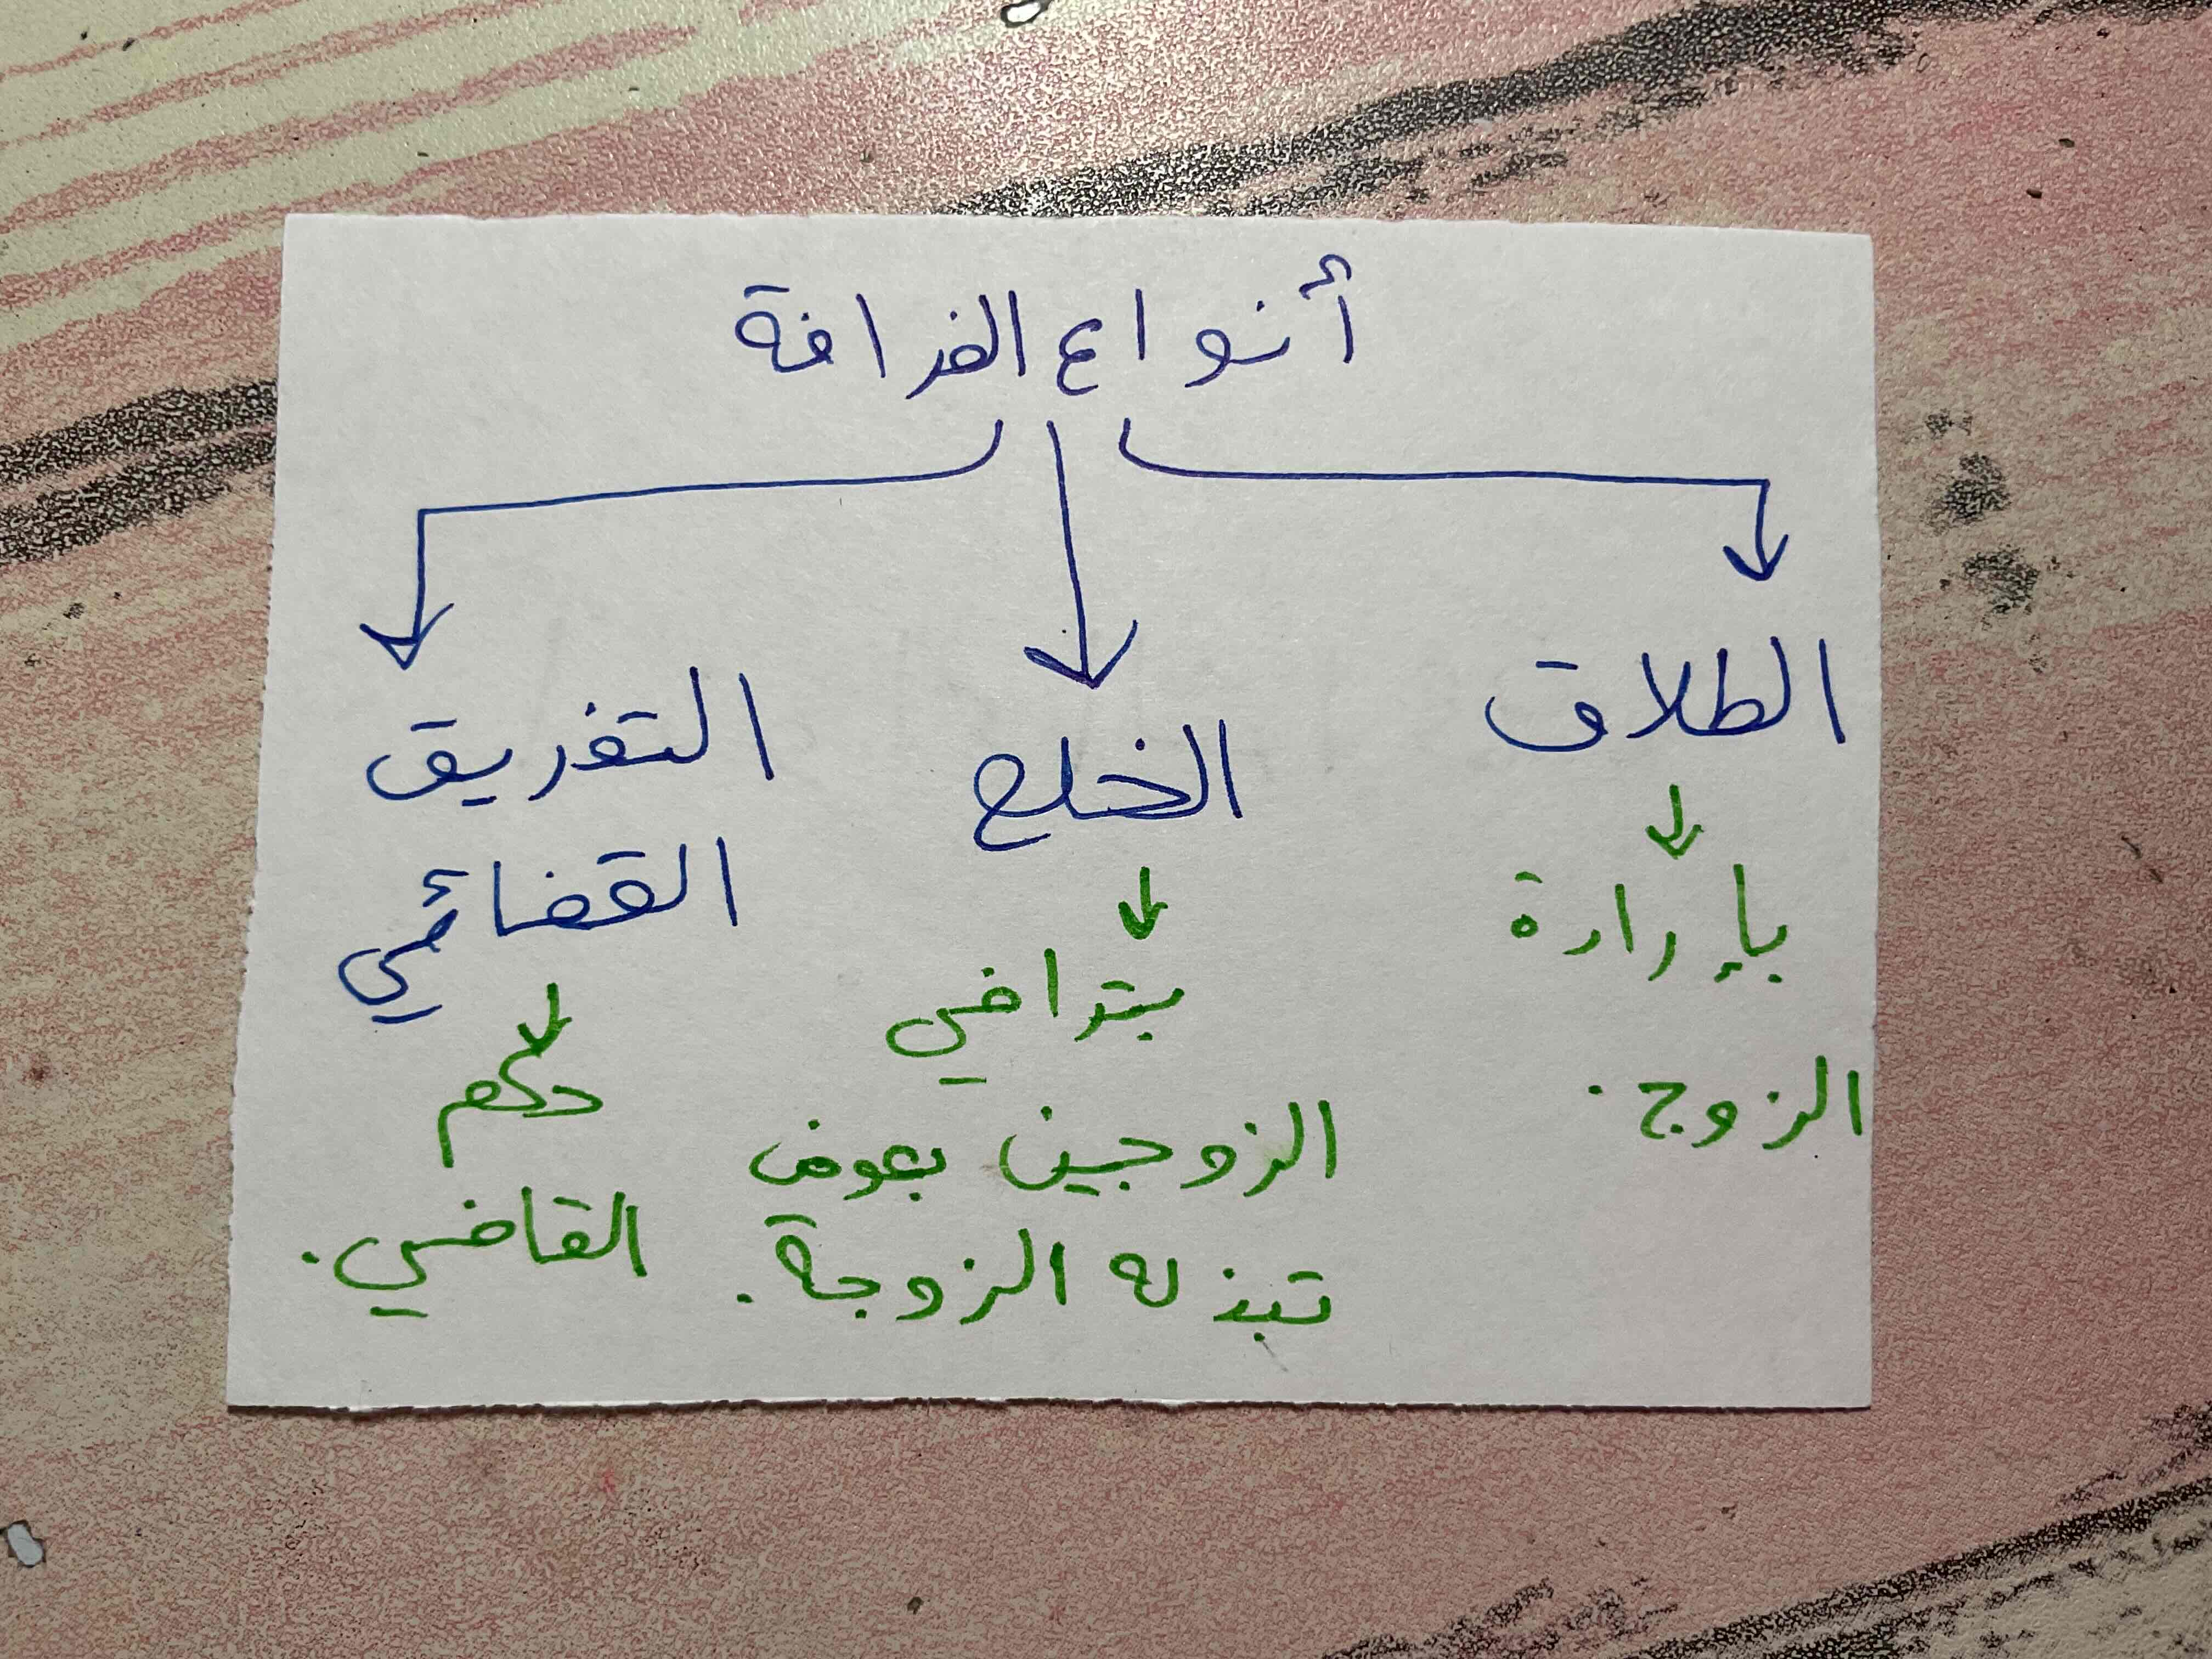 أنواع الفرافة
الطلاق
بإرادة
الزوج.
الخلع
بتراضي
الزوجين بعوض
تبذله الزوجة.
التفريق
القضائي
حكم
القاضي.